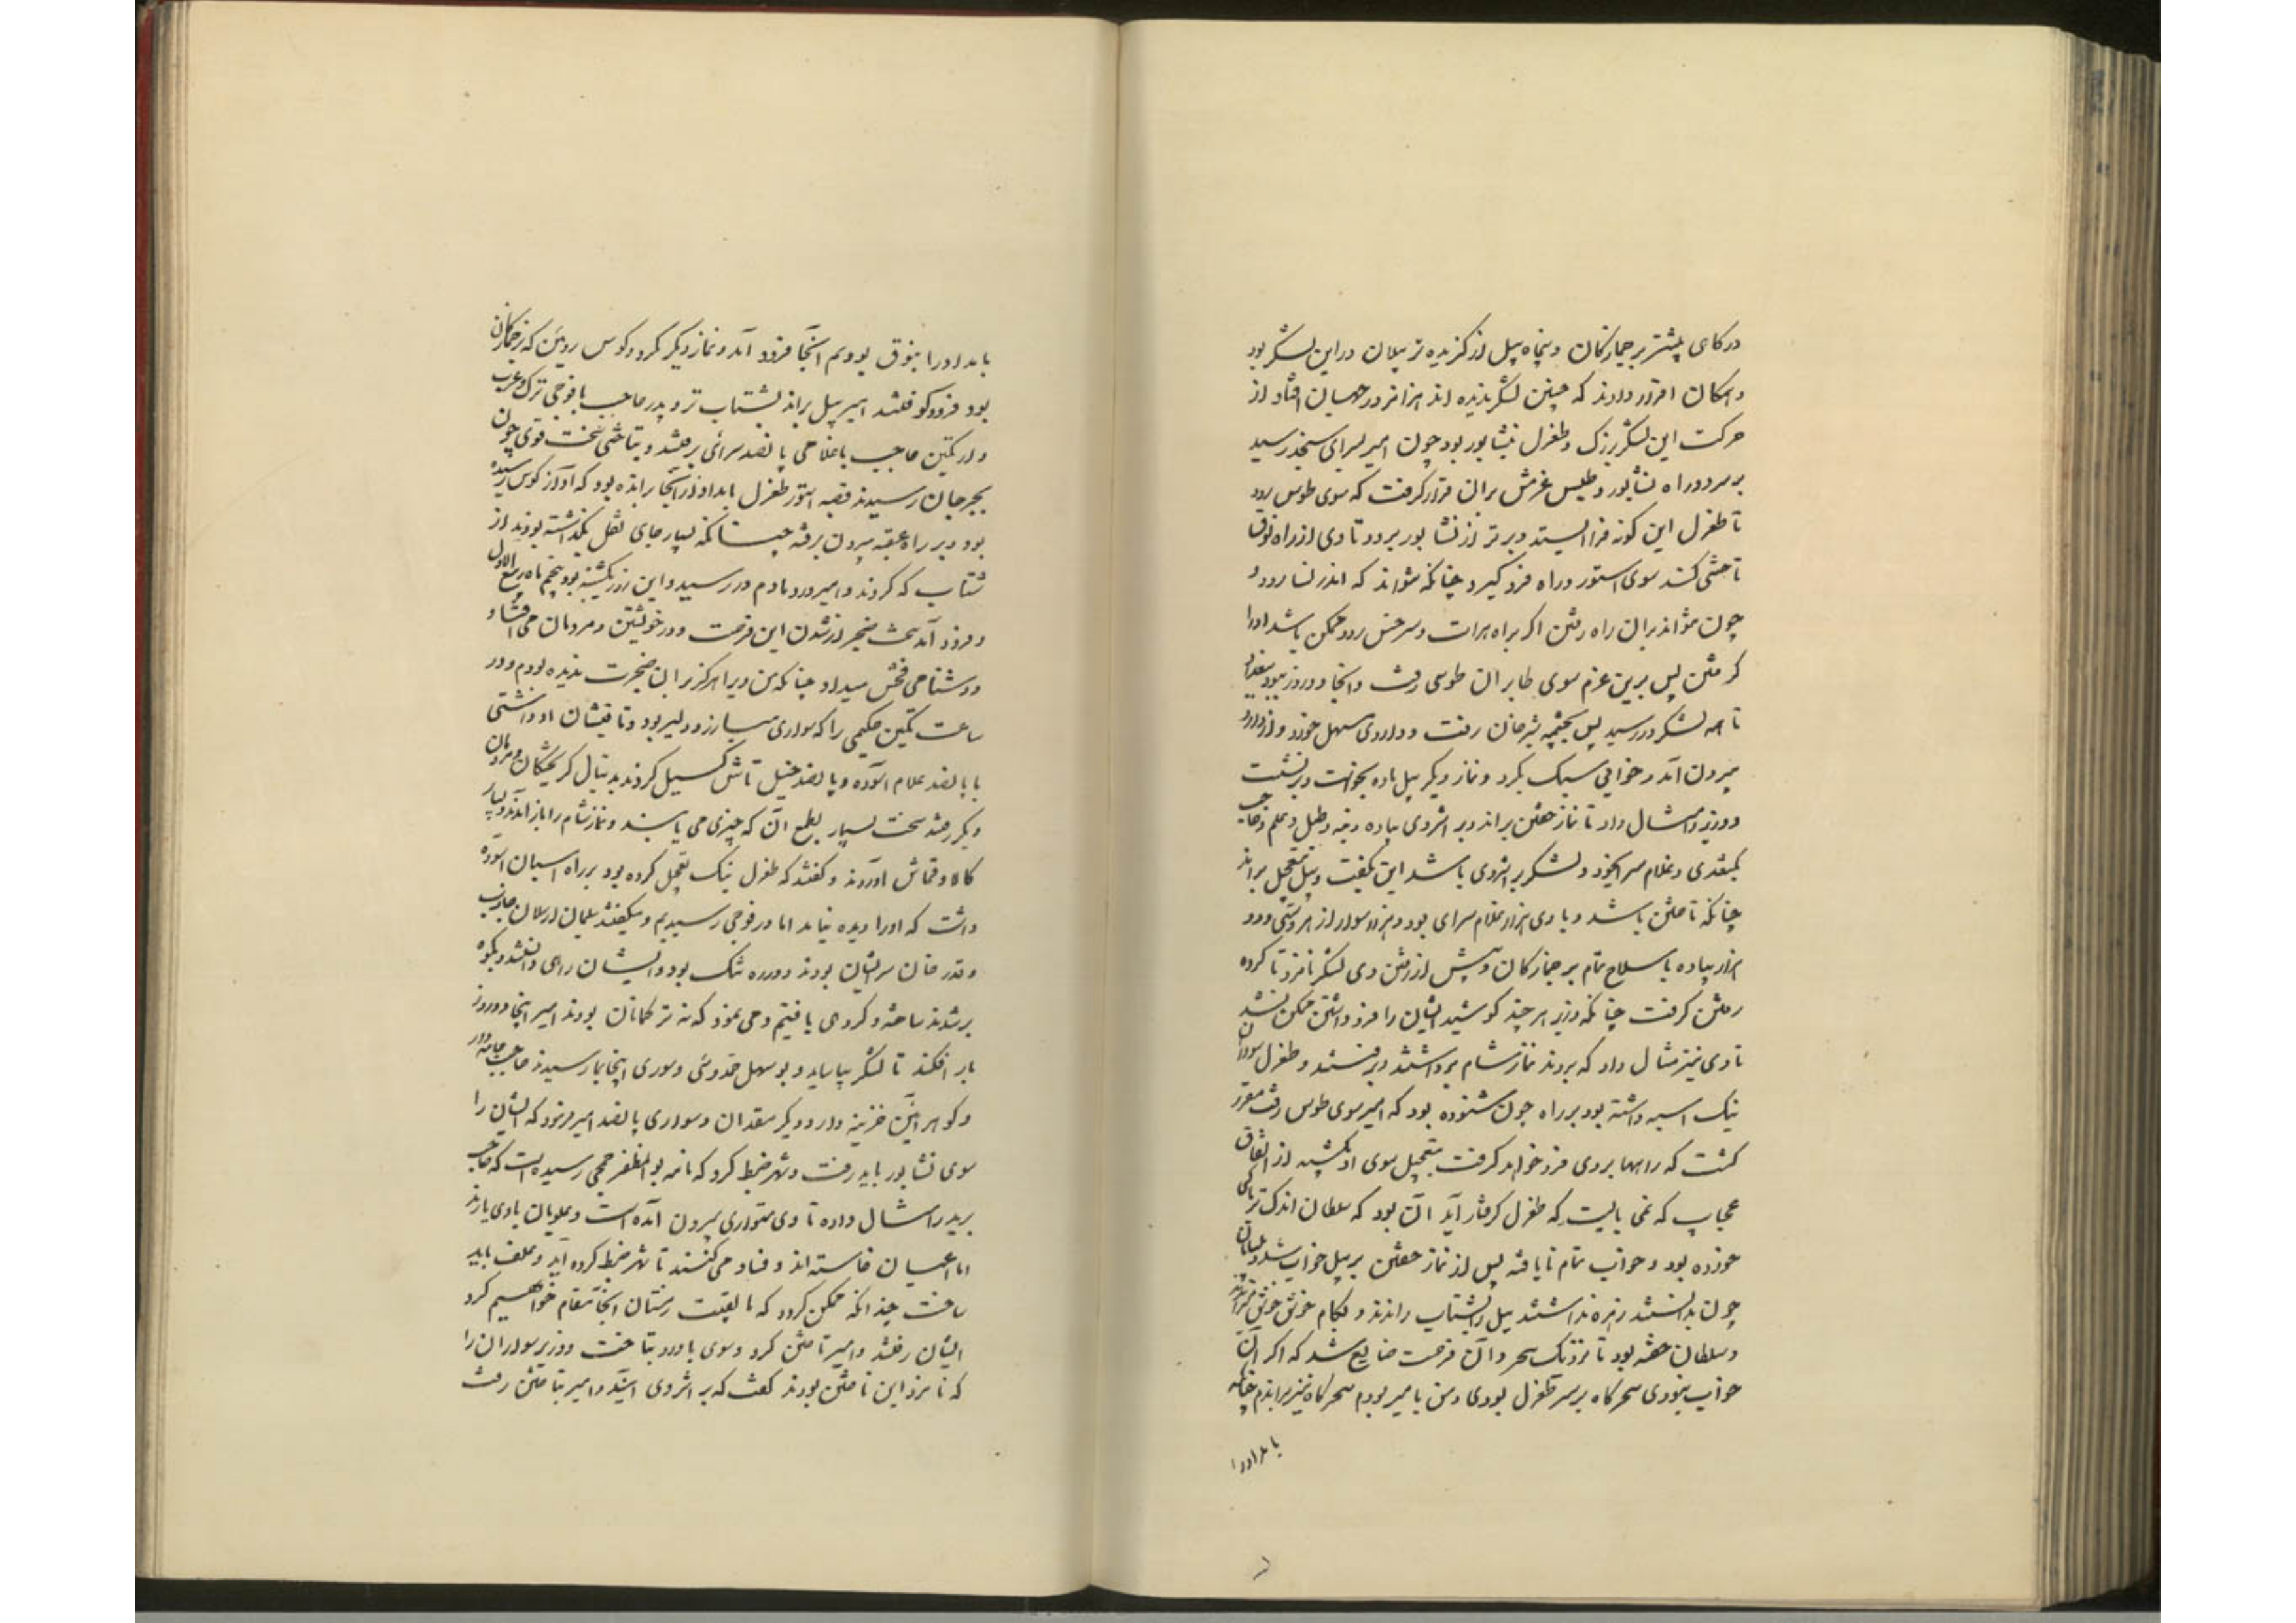 درکاهی بیشتر بر جمازکان و پنجاه پیل از کزیده تر پیلان در این لشکر بود
و همکان اقرار دادند که چنین لشکر ندیده اند هزاهز در جهان افتاد از
حرکت این لشکر بزرک و طغرل بنشابور بود چون امیر بسرای سنجد رسید
بر سر دو راه نشابور و طوس عزمش بران قرار کرفت که سوی طوس رود
تا طغرل این کونه فرا ایستد و دیرتر از نشابور برود تا وی از راه نوق
تاختنی کند سوی استور و راه فرو کیرد چنانکه نتواند که اندر نسا رود و
چون نتواند بران راه رفتن اکر براه هرات و سرخس رود ممکن باشد او را
کرفتن پس برین عزم سوی طابران طوسی رفت و آنجا دو روز ببود
تا همه لشکر در رسید پس بچشمه شیرخان رفت و داروی مسهل خورد و از دارو
بیرون آمد و خوابی سبک بکرد و نماز دیکر پیل ماده بخواست و بر نشست
و وزیر را مثال داد تا نماز خفتن براند و بر اثر وی پیاده و بنه و طبل و علم و حاجب
بکتغدی و غلام سرای و لشکر بر اثر وی باشد این بکفت و پیل بتعجیل براند
چنانکه تاختن باشد و با وی هزار غلام سرای بود و دو هزار سوار از هر دستی و دو
هزار پیاده با سلاح تمام بر جمازکان و پیش از رفتن وی لشکر نامزد نا کرده
رفتن کرفت چنانکه وزیر هر چند کوشید ایشان را فرو داشتن ممکن نشد
تا وی نیز مثال داد که بروند نماز شام برداشتند و برفتند و طغرل سواران
نیک اسبه داشته بود بر راه چون شنوده بود که امیر سوی طوس رفت مقرر
کشت که راهها بر وی فرو خواهد کرفت بتعجیل سوی اوتشید از اتفاق
عجایب که نمی بایست که طغرل کرفتار آید آن بود که سلطان اندک تریاکی
خورده بود و خواب تمام نایافته پس از نماز خفتن بر پیل خواب شد و پیلبانان
چون بدانستند زهره نداشتند پیل را بشتاب راندند و بکام خوش خوش میراندند
و سلطان خفته بود تا نزدیک سحر و آن فرصت ضایع شد که اکر آن
خواب نبودی سحرکاه بر سر طغرل بودی و من با امیر بودم سحرکاه تیز براندیم چنانکه
بامداد را
بامداد را بنوق بودیم آنجا فرود آمد و نماز دیکر کرد و کوس رویین که بر جمازکان
بود فرو کوفتند امیر پیل براند بشتاب تر و بدر حاجب با فوجی ترک و عرب
و ارتکین حاجب با غلامی پانصد سرائی برفتند و بتاختنی سخت قوی چون
بجرجان رسیدند قصبه استور طغرل بامداد از آنجا رانده بود که آواز کوس رسیده
بود و بر راه عقبه بیرون برفته چنانکه بسیار جای ثقل بکذاشته بودند از
شتاب که کردند و امیر دمادم در رسید و این روز یکشنبه بود پنجم ماه ربیع الاول
و فرود آمد سخت ضجر از شدن این فرصت و در خویشتن و مردمان می افتاد و
و دشنام فحش میداد چنانکه من ویرا هرکز بر ان ضجرت ندیده بودم و در
ساعت تکین جکیمی را که سواری مبارز و دلیر بود و تاختنها او داشتی
با پانصد غلام آسوده و پانصد خیل تاش کسیل کردند بدنبال کریختکان و مردمان
دیکر رفتند سخت بسیار بطمع آن که چیزی می یابند و نماز شام را باز آمدند و بسیار
کالا و قماش آوردند و کفتند که طغرل نیک تعجیل کرده بود بر راه اسبان آسوده
داشت که او را دیده نیامد اما در فوجی رسیدیم و میکفتند سلمان ارسلان جاذب
و قدر خان سر ایشان بودند و دره تنک بود و ایشان راهی دانستند و بکوه
بر شدند ساخته و کروهی یافتیم و می نمود که نه ترکمانان بودند امیر اینجا دو روز
بار افکند تا لشکر بیاساید و بو سهل حمدونی و سوری اینجا بما رسیدند با حاجب جامه دار
و کوهر آئین خزینه دار و دیکر مقدمان و سواری پانصد امیر فرمود که ایشان را
سوی نشابور باید رفت و شهر ضبط کرد که نامه بو المظفر جمحی رسیده است که صاحب
برید را مثال داده تا وی متواری بیرون آمده است و علویان با وی یارند
اما اعیان فاسته اند و فساد می کنند تا شهر ضبط کرده آید و علف باید
ساخت چندانکه ممکن کردد که ما بقیت زمستان آنجا مقام خواهیم کرد
ایشان رفتند و امیر تاختن کرد و سوی باورد بتاخت و وزیر سواران را
که نامزد این تاختن بودند کفت که بر اثر وی آیند و امیر بتاختن رفت